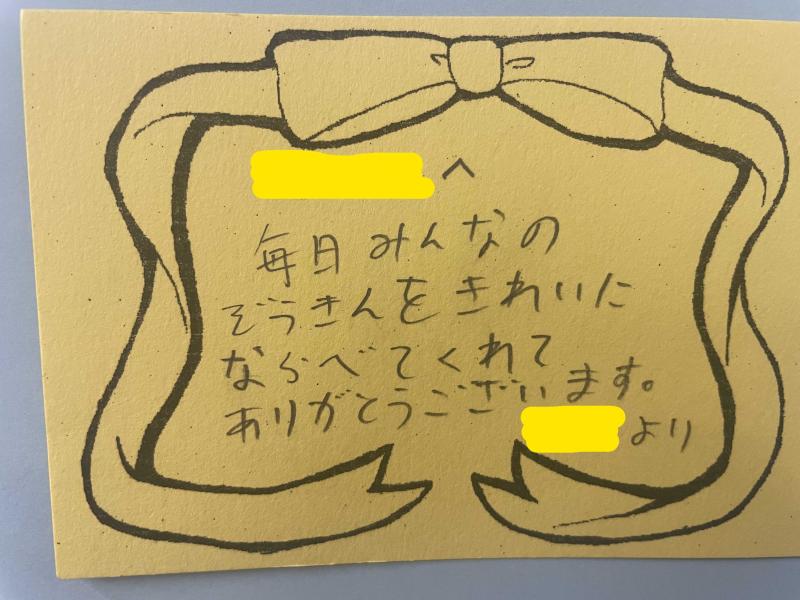 へ
毎日みんなの
ぞうきんをきれいに
ならべてくれて
ありがとうございます。
より